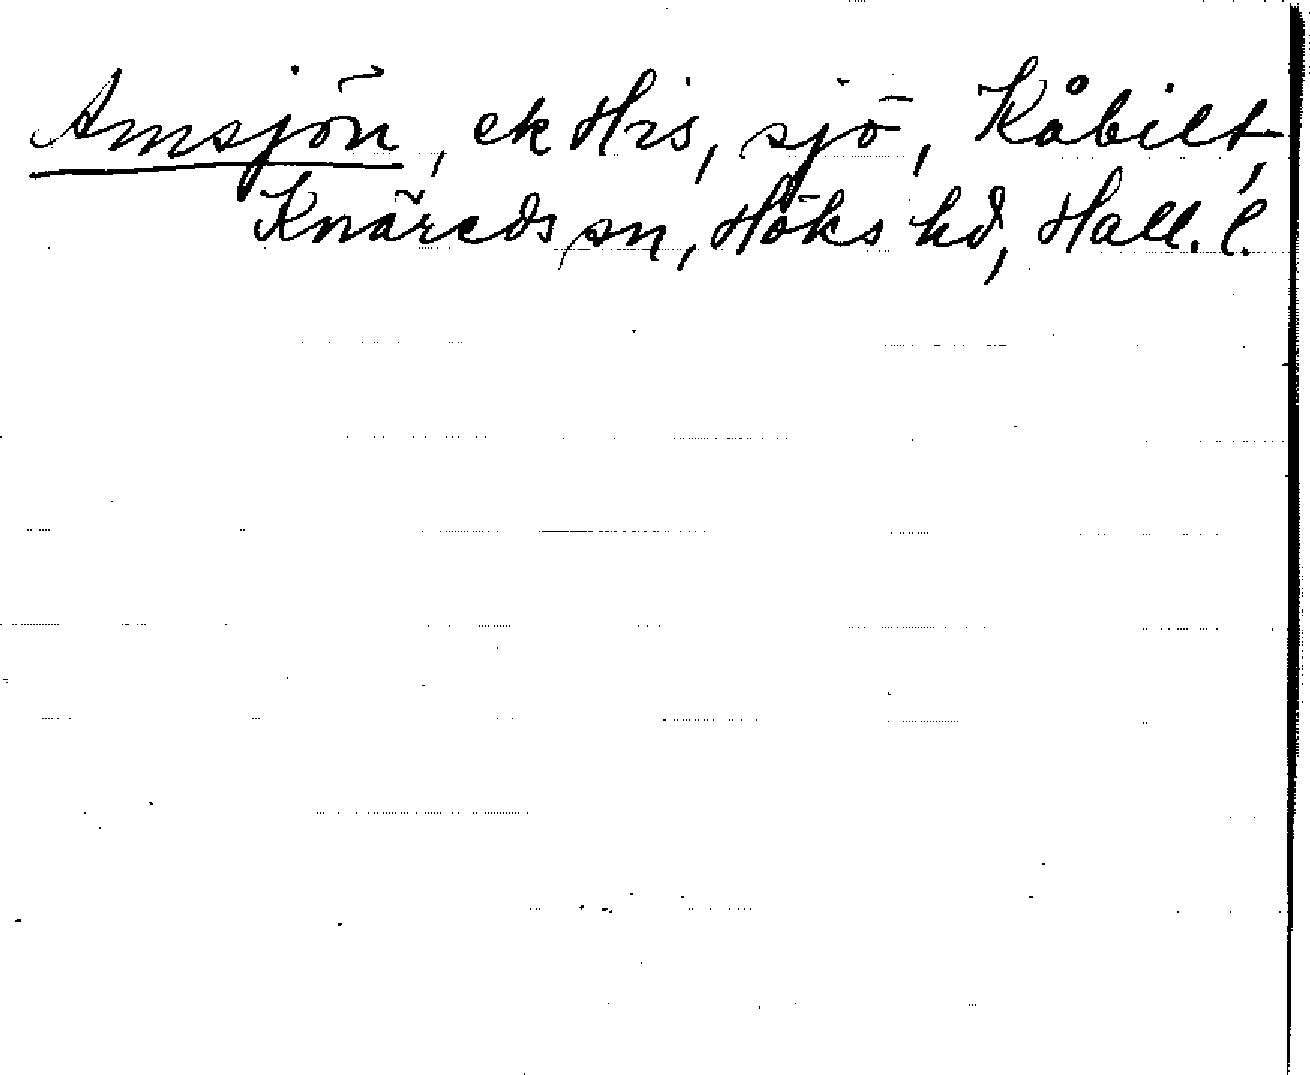 Amsjön, ek His, sjö, Kåbilt,
Knäreds sn, Höks hd, Hall. l.